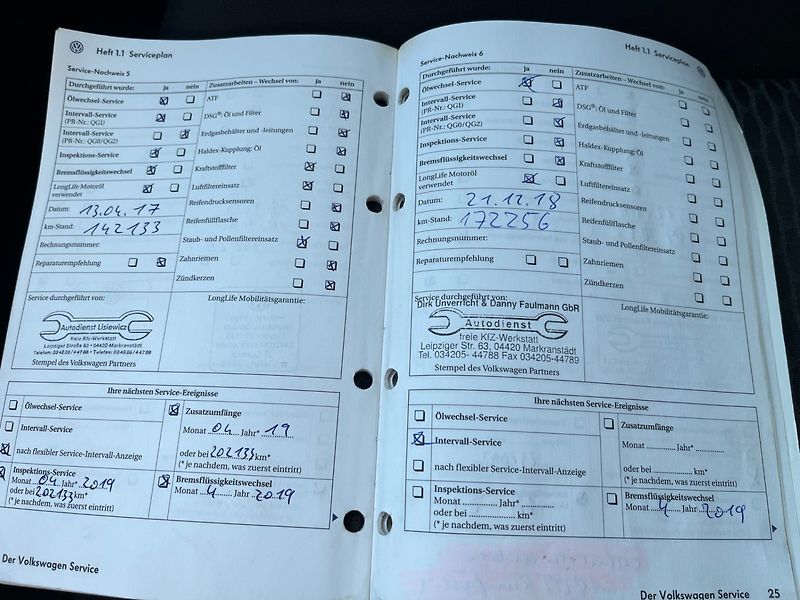 Heft 1.1 Serviceplan
Service-Nachweis 5
Durchgeführt wurde: ja nein
Zusatzarbeiten – Wechsel von: ja nein
Ölwechsel-Service
ATF
Intervall-Service
(PR-Nr.: QG1)
DSG®: Öl und Filter
Intervall-Service
(PR-Nr.: QG0/QG2)
Erdgasbehälter und -leitungen
Inspektions-Service
Haldex-Kupplung: Öl
Bremsflüssigkeitswechsel
Kraftstofffilter
LongLife Motoröl
verwendet
Luftfiltereinsatz
Datum: 13.04.17
Reifendruckensoren
km-Stand: 142133
Reifenfüllflasche
Rechnungsnummer:
Staub- und Pollenfiltereinsatz
Reparaturempfehlung
Zahnriemen
Zündkerzen
Service durchgeführt von:
LongLife Mobilitätsgarantie:
Autodienst Lisiewicz
freie Kfz-Werkstatt
Leipziger Straße 63 • 04420 Markranstädt
Telefon: 034205/44788 • Telefax: 034205/44789
Stempel des Volkswagen Partners
Ihre nächsten Service-Ereignisse
Ölwechsel-Service
Zusatzumfänge
Monat 04 Jahr* 19
Intervall-Service
oder bei 202133 km*
(* je nachdem, was zuerst eintritt)
nach flexibler Service-Intervall-Anzeige
Inspektions-Service
Monat 04 Jahr* 2019
oder bei 202133 km*
(* je nachdem, was zuerst eintritt)
Bremsflüssigkeitswechsel
Monat 4 Jahr 2019
Der Volkswagen Service
Heft 1.1 Serviceplan
Service-Nachweis 6
Durchgeführt wurde: ja nein
Zusatzarbeiten – Wechsel von: ja nein
Ölwechsel-Service
ATF
Intervall-Service
(PR-Nr.: QG1)
DSG®: Öl und Filter
Intervall-Service
(PR-Nr.: QG0/QG2)
Erdgasbehälter und -leitungen
Inspektions-Service
Haldex-Kupplung: Öl
Bremsflüssigkeitswechsel
Kraftstofffilter
LongLife Motoröl
verwendet
Luftfiltereinsatz
Datum: 21.12.18
Reifendrucksensoren
km-Stand: 172256
Reifenfüllflasche
Rechnungsnummer:
Staub- und Pollenfiltereinsatz
Reparaturempfehlung
Zahnriemen
Zündkerzen
Service durchgeführt von:
LongLife Mobilitätsgarantie:
Dirk Unverricht & Danny Faulmann GbR
Autodienst
freie KfZ-Werkstatt
Leipziger Str. 63, 04420 Markranstädt
Tel. 034205- 44788 Fax 034205-44789
Stempel des Volkswagen Partners
Ihre nächsten Service-Ereignisse
Ölwechsel-Service
Zusatzumfänge
Intervall-Service
Monat Jahr*
nach flexibler Service-Intervall-Anzeige
oder bei km*
(* je nachdem, was zuerst eintritt)
Inspektions-Service
Monat Jahr*
oder bei km*
(* je nachdem, was zuerst eintritt)
Bremsflüssigkeitswechsel
Monat 4 Jahr 2019
Der Volkswagen Service 25